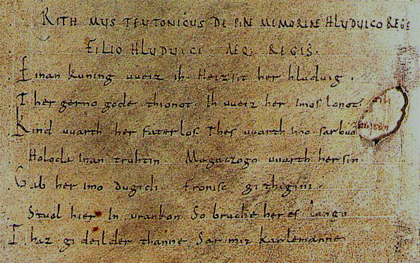 RITHMUS TEUTONICUS DE PIAE MEMORIAE HLUDUICO REGE
FILIO HLUDUICI AEQ; REGIS.
Einan kuning uueiz ih. Heizsit her hluduig.
Ther gerno gode thionot. Ih uueiz her imos lonot.
Kind uuarth her faterlos. Thes uuarth imo sar buoz
Holoda inan truhtin Magaczogo uuarth her sin.
Gab her imo dugidi. fronisc githigini.
Stual hier in urankon. So bruche her es lango.
Thaz gideilder thanne. Sar mit karlemanne